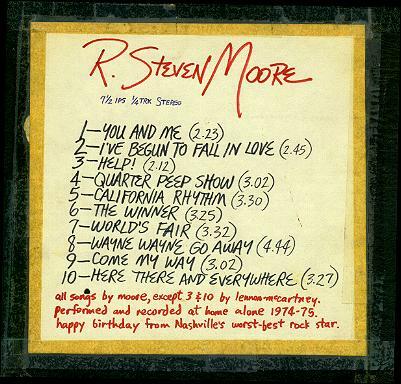 R. STEVEN MOORE
7½ IPS ¼ TRK STEREO
1—YOU AND ME (2.23)
2—I'VE BEGUN TO FALL IN LOVE (2.45)
3—HELP! (2.12)
4—QUARTER PEEP SHOW (3.02)
5—CALIFORNIA RHYTHM (3.30)
6—THE WINNER (3.25)
7—WORLD'S FAIR (3.32)
8—WAYNE WAYNE GO AWAY (4.44)
9—COME MY WAY (3.02)
10—HERE THERE AND EVERYWHERE (3.27)
all songs by moore, except 3 & 10 by lennon-mccartney.
performed and recorded at home alone 1974-75.
happy birthday from Nashville's worst-best rock star.